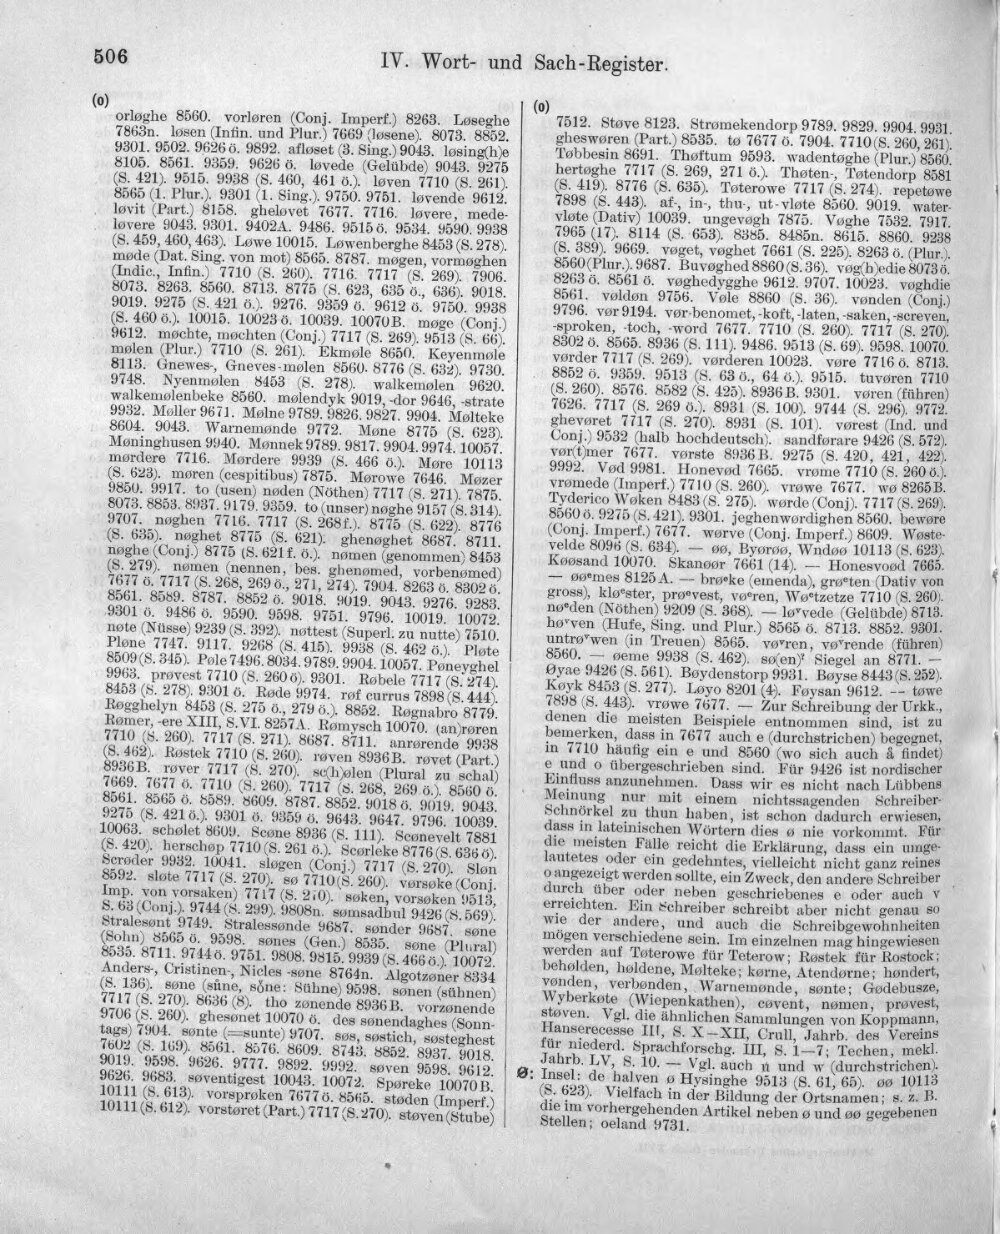 506
IV. Wort- und Sach-Register.
(o)
orløghe 8560. vorløren (Conj. Imperf.) 8263. Løseghe
7863n. løsen (Infin. und Plur.) 7669 (løsene). 8073. 8852.
9301. 9502. 9626 ö. 9892. afløset (3. Sing.) 9043. løsing(h)e
8105. 8561. 9359. 9626 ö. løvede (Gelübde) 9043. 9275
(S. 421). 9515. 9938 (S. 460, 461 ö.). løven 7710 (S. 261).
8565 (1. Plur.). 9301 (1. Sing.). 9750. 9751. løvende 9612.
løvit (Part.) 8158. gheløvet 7677. 7716. løvere, mede-
løvere 9043. 9301. 9402A. 9486. 9515 ö. 9534. 9590. 9938
(S. 459, 460, 463). Løwe 10015. Løwenberghe 8453 (S. 278).
møde (Dat. Sing. von mot) 8565. 8787. møgen, vormøghen
(Indic., Infin.) 7710 (S. 260). 7716. 7717 (S. 269). 7906.
8073. 8263. 8560. 8713. 8775 (S. 623, 635 ö., 636). 9018.
9019. 9275 (S. 421 ö.). 9276. 9359 ö. 9612 ö. 9750. 9938
(S. 460 ö.). 10015. 10023 ö. 10039. 10070B. møge (Conj.)
9612. møchte, møchten (Conj.) 7717 (S. 269). 9513 (S. 66).
mølen (Plur.) 7710 (S. 261). Ekmøle 8650. Keyenmøle
8113. Gnewes-, Gneves-mølen 8560. 8776 (S. 632). 9730.
9748. Nyenmølen 8453 (S. 278). walkemølen 9620.
walkemølenbeke 8560. mølendyk 9019, -dor 9646, -strate
9932. Møller 9671. Mølne 9789. 9826. 9827. 9904. Mølteke
8604. 9043. Warnemønde 9772. Møne 8775 (S. 623).
Møninghusen 9940. Mønnek 9789. 9817. 9904. 9974. 10057.
mørdere 7716. Mørdere 9939 (S. 466 ö.). Møre 10113
(S. 623). møren (cespitibus) 7875. Mørowe 7646. Møzer
9850. 9917. to (usen) nøden (Nöthen) 7717 (S. 271). 7875.
8073. 8853. 8937. 9179. 9359. to (unser) nøghe 9157 (S. 314).
9707. nøghen 7716. 7717 (S. 268f.). 8775 (S. 622). 8776
(S. 635). nøghet 8775 (S. 621). ghenøghet 8687. 8711.
nøghe (Conj.) 8775 (S. 621f. ö.). nømen (genommen) 8453
(S. 279). nømen (nennen, bes. ghenømed, vorbenømed)
7677 ö. 7717 (S. 268, 269 ö., 271, 274). 7904. 8263 ö. 8302 ö.
8561. 8589. 8787. 8852 ö. 9018. 9019. 9043. 9276. 9283.
9301 ö. 9486 ö. 9590. 9598. 9751. 9796. 10019. 10072.
nøte (Nüsse) 9239 (S. 392). nøttest (Superl. zu nutte) 7510.
Pløne 7747. 9117. 9268 (S. 415). 9938 (S. 462 ö.). Pløte
8509 (S. 345). Pøle 7496. 8034. 9789. 9904. 10057. Pøneyghel
9963. prøvest 7710 (S. 260 ö). 9301. Røbele 7717 (S. 274).
8453 (S. 278). 9301 ö. Røde 9974. røf currus 7898 (S. 444).
Røgghelyn 8453 (S. 275 ö., 279 ö.). 8852. Røgnabro 8779.
Rømer, -ere XIII, S. VI. 8257A. Rømysch 10070. (an)røren
7710 (S. 260). 7717 (S. 271). 8687. 8711. anrørende 9938
(S. 462). Røstek 7710 (S. 260). røven 8936B. røvet (Part.)
8936B. røver 7717 (S. 270). sc(h)ølen (Plural zu schal)
7669. 7677 ö. 7710 (S. 260). 7717 (S. 268, 269 ö.). 8560 ö.
8561. 8565 ö. 8589. 8609. 8787. 8852. 9018 ö. 9019. 9043.
9275 (S. 421 ö.). 9301 ö. 9359 ö. 9643. 9647. 9796. 10039.
10063. schølet 8609. Scøne 8936 (S. 111). Scønevelt 7881
(S. 420). herschøp 7710 (S. 261 ö.). Scørleke 8776 (S. 636 ö).
Scrøder 9932. 10041. sløgen (Conj.) 7717 (S. 270). Sløn
8592. sløte 7717 (S. 270). sø 7710 (S. 260). vørsøke (Conj.
Imp. von vorsaken) 7717 (S. 270). søken, vorsøken 9513,
S. 63 (Conj.). 9744 (S. 299). 9808n. sømsadbul 9426 (S. 569).
Stralesønt 9749. Stralessønde 9687. sønder 9687. søne
(Sohn) 8565 ö. 9598. sønes (Gen.) 8535. søne (Plural)
8535. 8711. 9744 ö. 9751. 9808. 9815. 9939 (S. 466 ö.). 10072.
Anders-, Cristinen-, Nicles -søne 8764n. Algotzøner 8334
(S. 136). søne (süne, söne: Sühne) 9598. sønen (sühnen)
7717 (S. 270). 8636 (8). tho zønende 8936B. vorzønende
9706 (S. 260). ghesønet 10070 ö. des sønendaghes (Sonn-
tags) 7904. sønte (=sunte) 9707. søs, søstich, søsteghest
7602 (S. 169). 8561. 8576. 8609. 8743. 8852. 8937. 9018.
9019. 9598. 9626. 9777. 9892. 9992. søven 9598. 9612.
9626. 9683. søventigest 10043. 10072. Spøreke 10070B.
10111 (S. 613). vorsprøken 7677 ö. 8565. støden (Imperf.)
10111 (S. 612). vorstøret (Part.) 7717 (S. 270). støven (Stube)
(o)
7512. Støve 8123. Strømekendorp 9789. 9829. 9904. 9931.
gheswøren (Part.) 8535. tø 7677 ö. 7904. 7710 (S. 260, 261).
Tøbbesin 8691. Thøftum 9593. wadentøghe (Plur.) 8560.
hertøghe 7717 (S. 269, 271 ö.). Thøten-, Tøtendorp 8581
(S. 419). 8776 (S. 635). Tøterowe 7717 (S. 274). repetøwe
7898 (S. 443). af-, in-, thu-, ut-vløte 8560. 9019. water-
vløte (Dativ) 10039. ungevøgh 7875. Vøghe 7532. 7917.
7965 (17). 8114 (S. 653). 8385. 8485n. 8615. 8860. 9238
(S. 389). 9669. vøget, vøghet 7661 (S. 225). 8263 ö. (Plur.).
8560 (Plur.). 9687. Buvøghed 8860 (S. 36). vøg(h)edie 8073 ö.
8263 ö. 8561 ö. vøghedygghe 9612. 9707. 10023. vøghdie
8561. vøldøn 9756. Vøle 8860 (S. 36). vønden (Conj.)
9796. vør 9194. vør-benomet, -koft, -laten, -saken, -screven,
-sproken, -toch, -word 7677. 7710 (S. 260). 7717 (S. 270).
8302 ö. 8565. 8936 (S. 111). 9486. 9513 (S. 69). 9598. 10070.
vørder 7717 (S. 269). vørderen 10023. vøre 7716 ö. 8713.
8852 ö. 9359. 9513 (S. 63 ö., 64 ö.). 9515. tuvøren 7710
(S. 260). 8576. 8582 (S. 425). 8936B. 9301. vøren (führen)
7626. 7717 (S. 269 ö.). 8931 (S. 100). 9744 (S. 296). 9772.
ghevøret 7717 (S. 270). 8931 (S. 101). vørest (Ind. und
Conj.) 9532 (halb hochdeutsch). sandførare 9426 (S. 572).
vør(t)mer 7677. vørste 8936B. 9275 (S. 420, 421, 422).
9992. Vød 9981. Honevød 7665. vrøme 7710 (S. 260 ö.).
vrømede (Imperf.) 7710 (S. 260). vrøwe 7677. wø 8265B.
Tyderico Wøken 8483 (S. 275). wørde (Conj). 7717 (S. 269).
8560 ö. 9275 (S. 421). 9301. jeghenwørdighen 8560. bewøre
(Conj. Imperf.) 7677. wørve (Conj. Imperf.) 8609. Wøste-
velde 8096 (S. 634). — øø, Byørøø, Wndøø 10113 (S. 623).
Køøsand 10070. Skanøør 7661 (14). — Honesvoød 7665.
— øøᵉmes 8125A. — brøᵉke (emenda), grøᵉten (Dativ von
gross), kløᵉster, prøᵉvest, vøᵉren, Wøᵉtzetze 7710 (S. 260).
nøᵉden (Nöthen) 9209 (S. 368). — løᵛvede (Gelübde) 8713.
høᵛven (Hufe, Sing. und Plur.) 8565 ö. 8713. 8852. 9301.
untrøᵛwen (in Treuen) 8565. vøᵛren, vøᵛrende (führen)
8560. — øeme 9938 (S. 462). sø(en)? Siegel an 8771. —
Øyae 9426 (S. 561). Bøydenstorp 9931. Bøyse 8443 (S. 252).
Køyk 8453 (S. 277). Løyo 8201 (4). Føysan 9612. — tøwe
7898 (S. 443). vrøwe 7677. — Zur Schreibung der Urkk.,
denen die meisten Beispiele entnommen sind, ist zu
bemerken, dass in 7677 auch e (durchstrichen) begegnet,
in 7710 häufig ein e und 8560 (wo sich auch å findet)
e und o übergeschrieben sind. Für 9426 ist nordischer
Einfluss anzunehmen. Dass wir es nicht nach Lübbens
Meinung nur mit einem nichtssagenden Schreiber-
Schnörkel zu thun haben, ist schon dadurch erwiesen,
dass in lateinischen Wörtern dies ø nie vorkommt. Für
die meisten Fälle reicht die Erklärung, dass ein umge-
lautetes oder ein gedehntes, vielleicht nicht ganz reines
o angezeigt werden sollte, ein Zweck, den andere Schreiber
durch über oder neben geschriebenes e oder auch v
erreichten. Ein Schreiber schreibt aber nicht genau so
wie der andere, und auch die Schreibgewohnheiten
mögen verschiedene sein. Im einzelnen mag hingewiesen
werden auf Tøterowe für Teterow; Røstek für Rostock;
behølden, høldene, Mølteke; kørne, Atendørne; høndert,
vønden, verbønden, Warnemønde, sønte; Gødebusze,
Wyberkøte (Wiepenkathen), cøvent, nømen, prøvest,
støven. Vgl. die ähnlichen Sammlungen von Koppmann,
Hanserecesse III, S. X—XII, Crull, Jahrb. des Vereins
für niederd. Sprachforschg. III, S. 1—7; Techen, mekl.
Jahrb. LV, S. 10. — Vgl. auch n und w (durchstrichen).
Ø: Insel: de halven ø Hysinghe 9513 (S. 61, 65). øø 10113
(S. 623). Vielfach in der Bildung der Ortsnamen; s. z. B.
die im vorhergehenden Artikel neben ø und øø gegebenen
Stellen; oeland 9731.